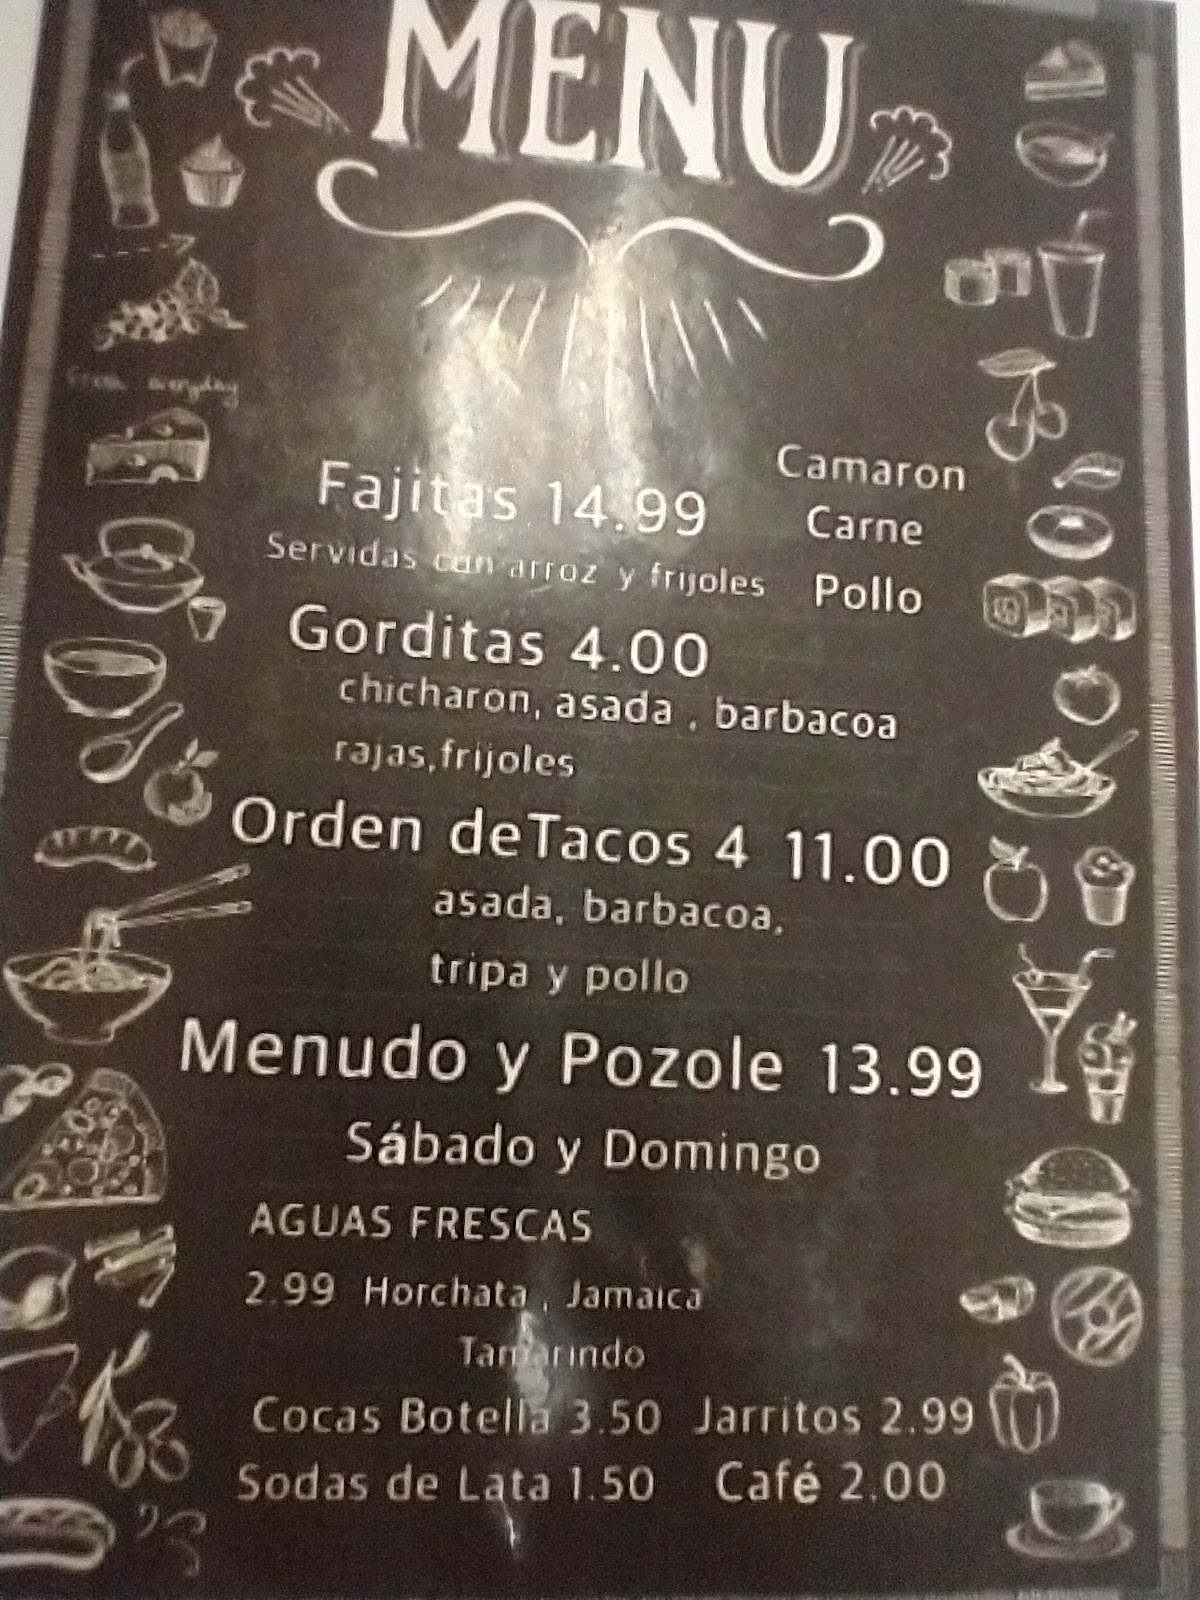 MENU
from everyday
Fajitas 14.99
Camaron
Carne
Pollo
Servidas con arroz y frijoles
Gorditas 4.00
chicharon, asada , barbacoa
rajas,frijoles
Orden deTacos 4 11.00
asada, barbacoa,
tripa y pollo
Menudo y Pozole 13.99
Sábado y Domingo
AGUAS FRESCAS
2.99 Horchata , Jamaica
Tamarindo
Cocas Botella 3.50 Jarritos 2.99
Sodas de Lata 1.50 Café 2.00